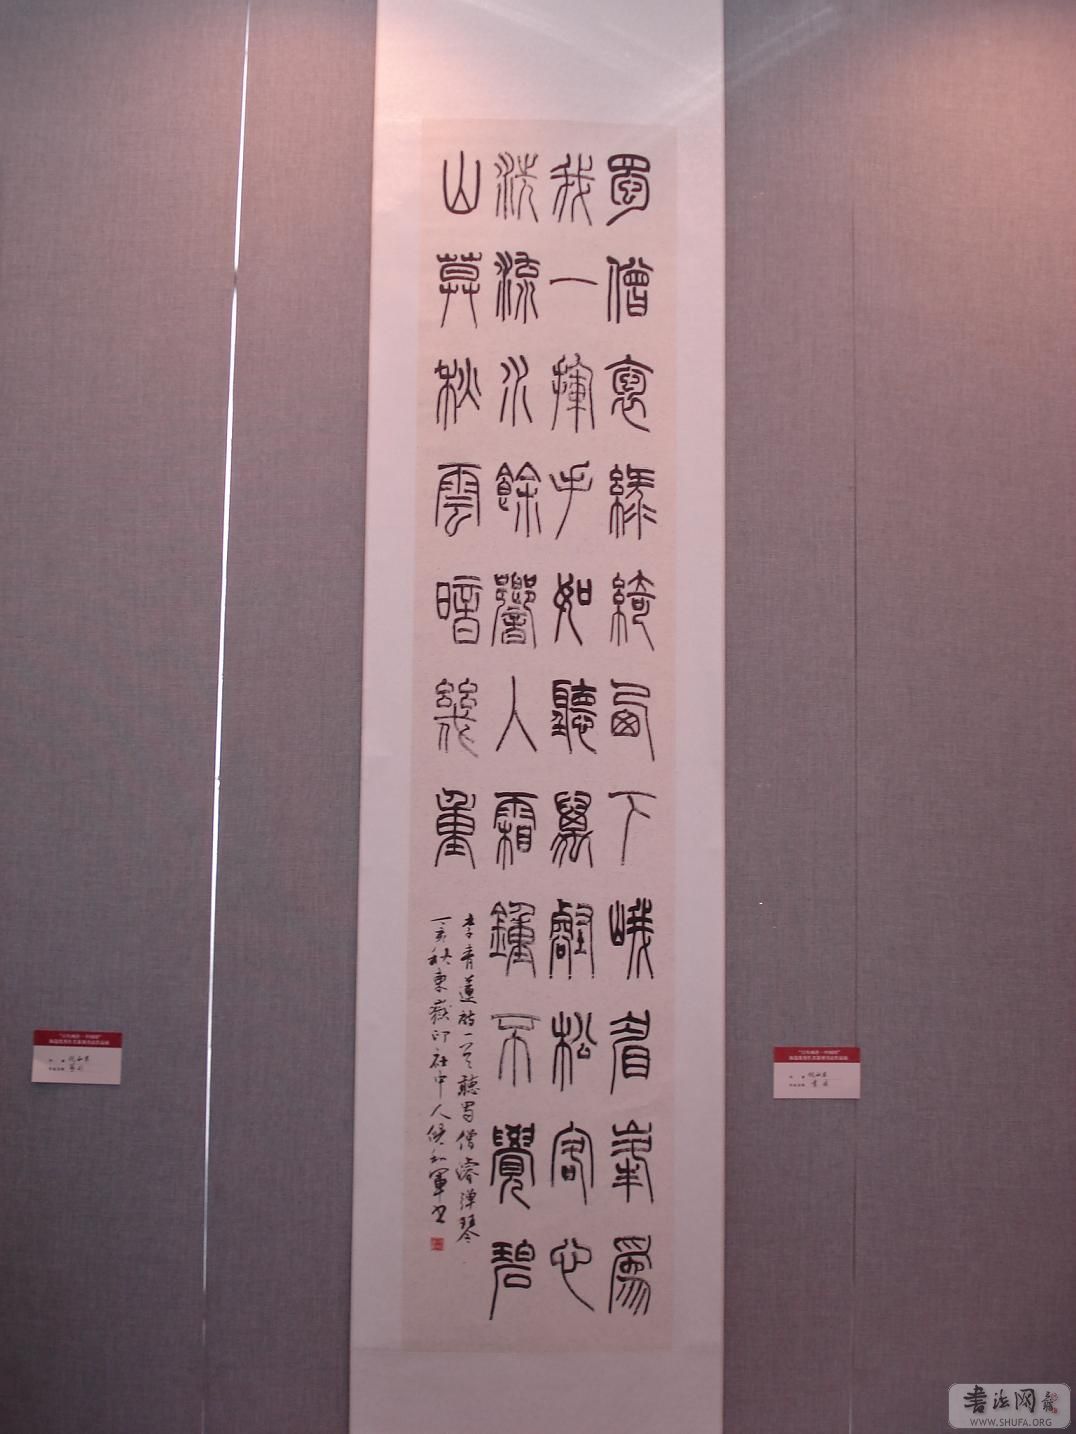 蜀僧裒綠綺西下峨眉峯爲
我一揮手如聽萬壑松客心
洗流水餘響人霜鐘不覺碧
山莫秋雲暗幾重
李青蓮詩一首聽蜀僧濬彈琴
丁亥秋東嶽印社中人候和軍書
書法网
WWW.SHUFA.ORG